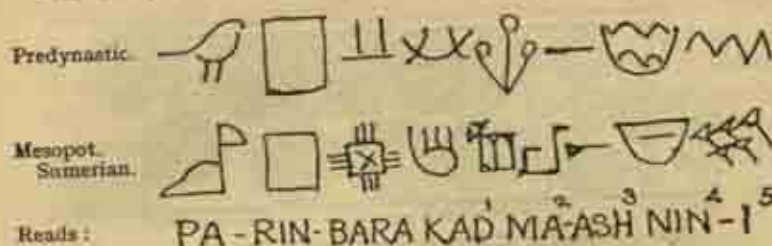 Predynastic.
Mesopot.
Sumerian.
Reads: PA-RIN-BARA KAD¹ MA²-ASH³ NIN⁴-I⁵